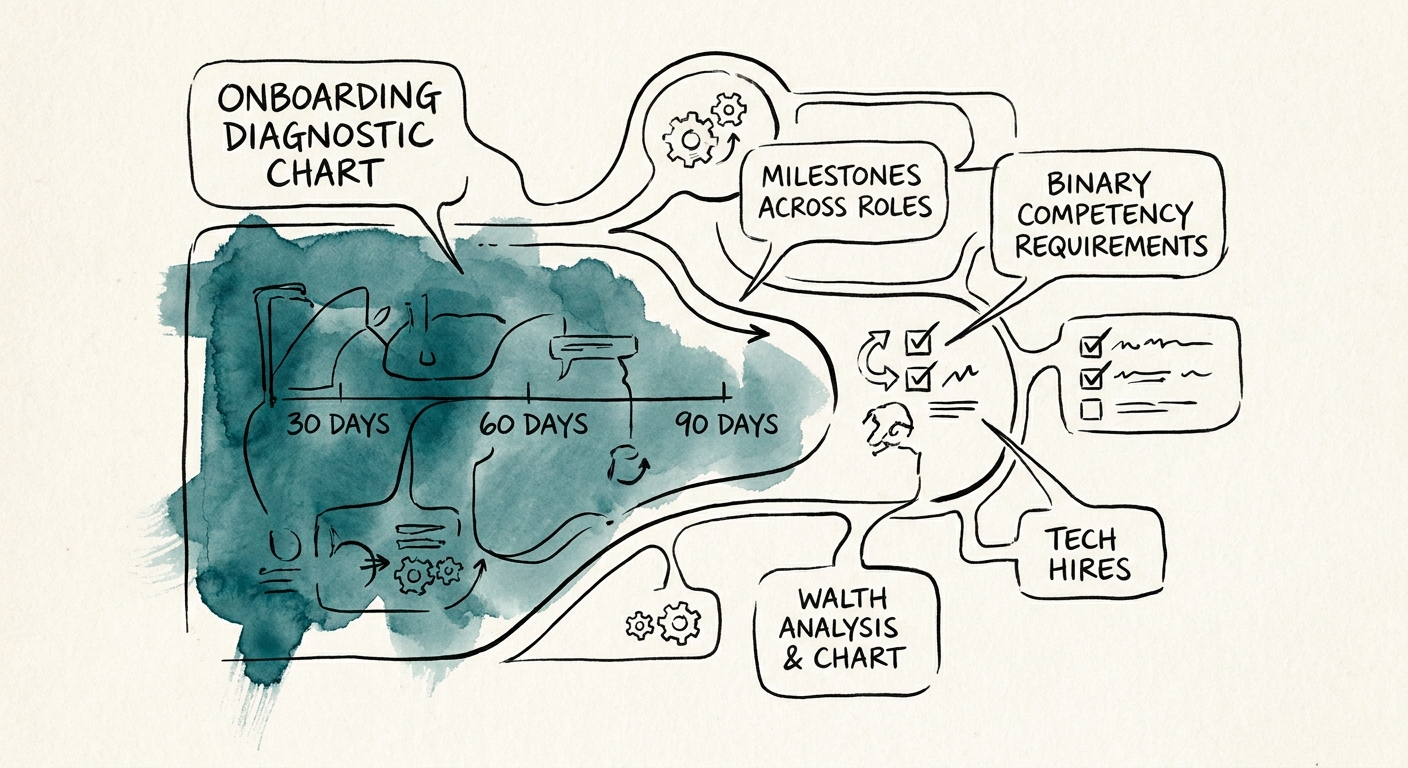 ONBOARDING
DIAGNOSTIC
CHART
MILESTONES
ACROSS ROLES
BINARY
COMPETENCY
REQUIREMENTS
30 DAYS
60 DAYS
90 DAYS
TECH
HIRES
WALTH
ANALYSIS
& CHART